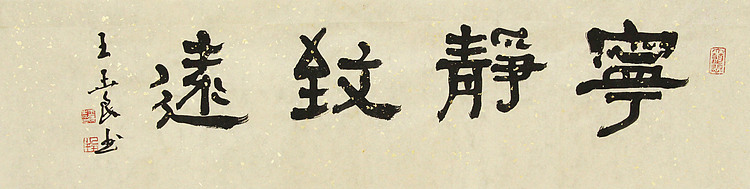 寧靜致遠
王玉良书